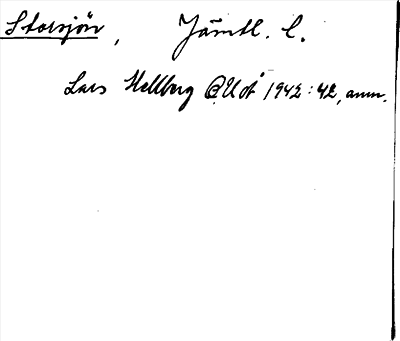 Storsjön, Jämtl. l.
Lars Hellberg 1942:42, anm.